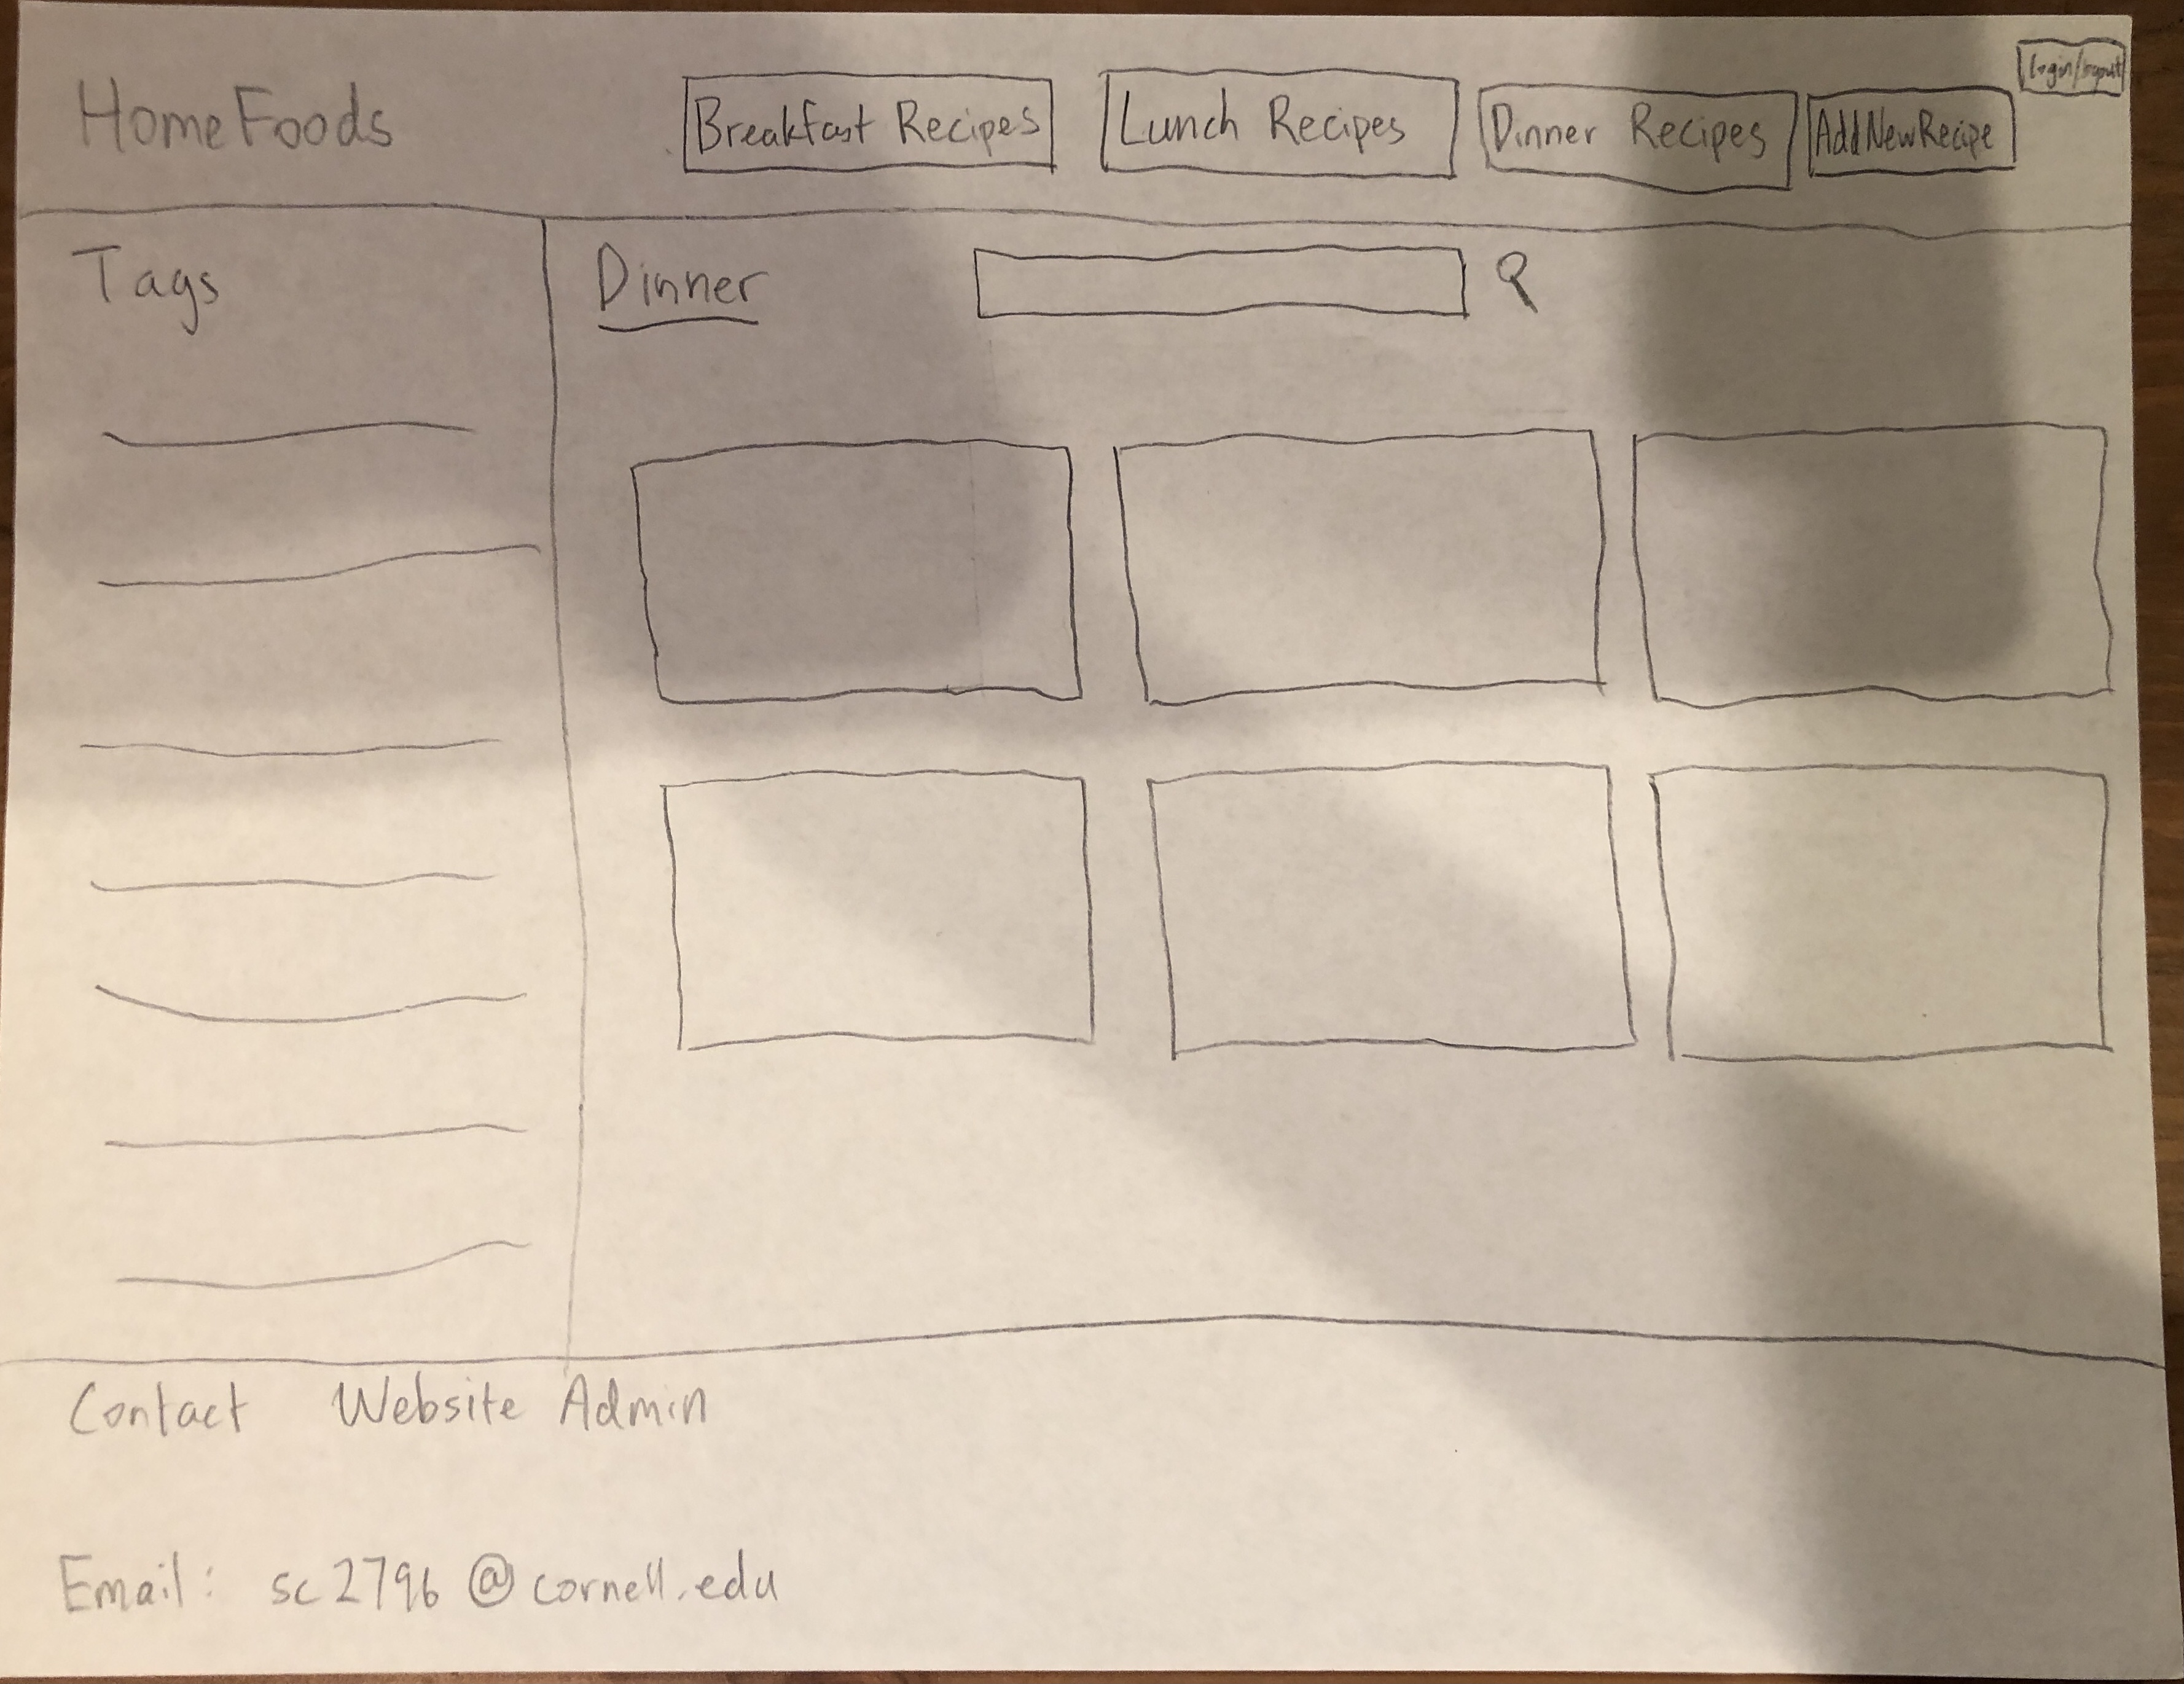 Login/logout
HomeFoods
Breakfast Recipes
Lunch Recipes
Dinner Recipes
AddNewRecipe
Tags
Dinner
Contact Website Admin
Email: sc2796@cornell.edu